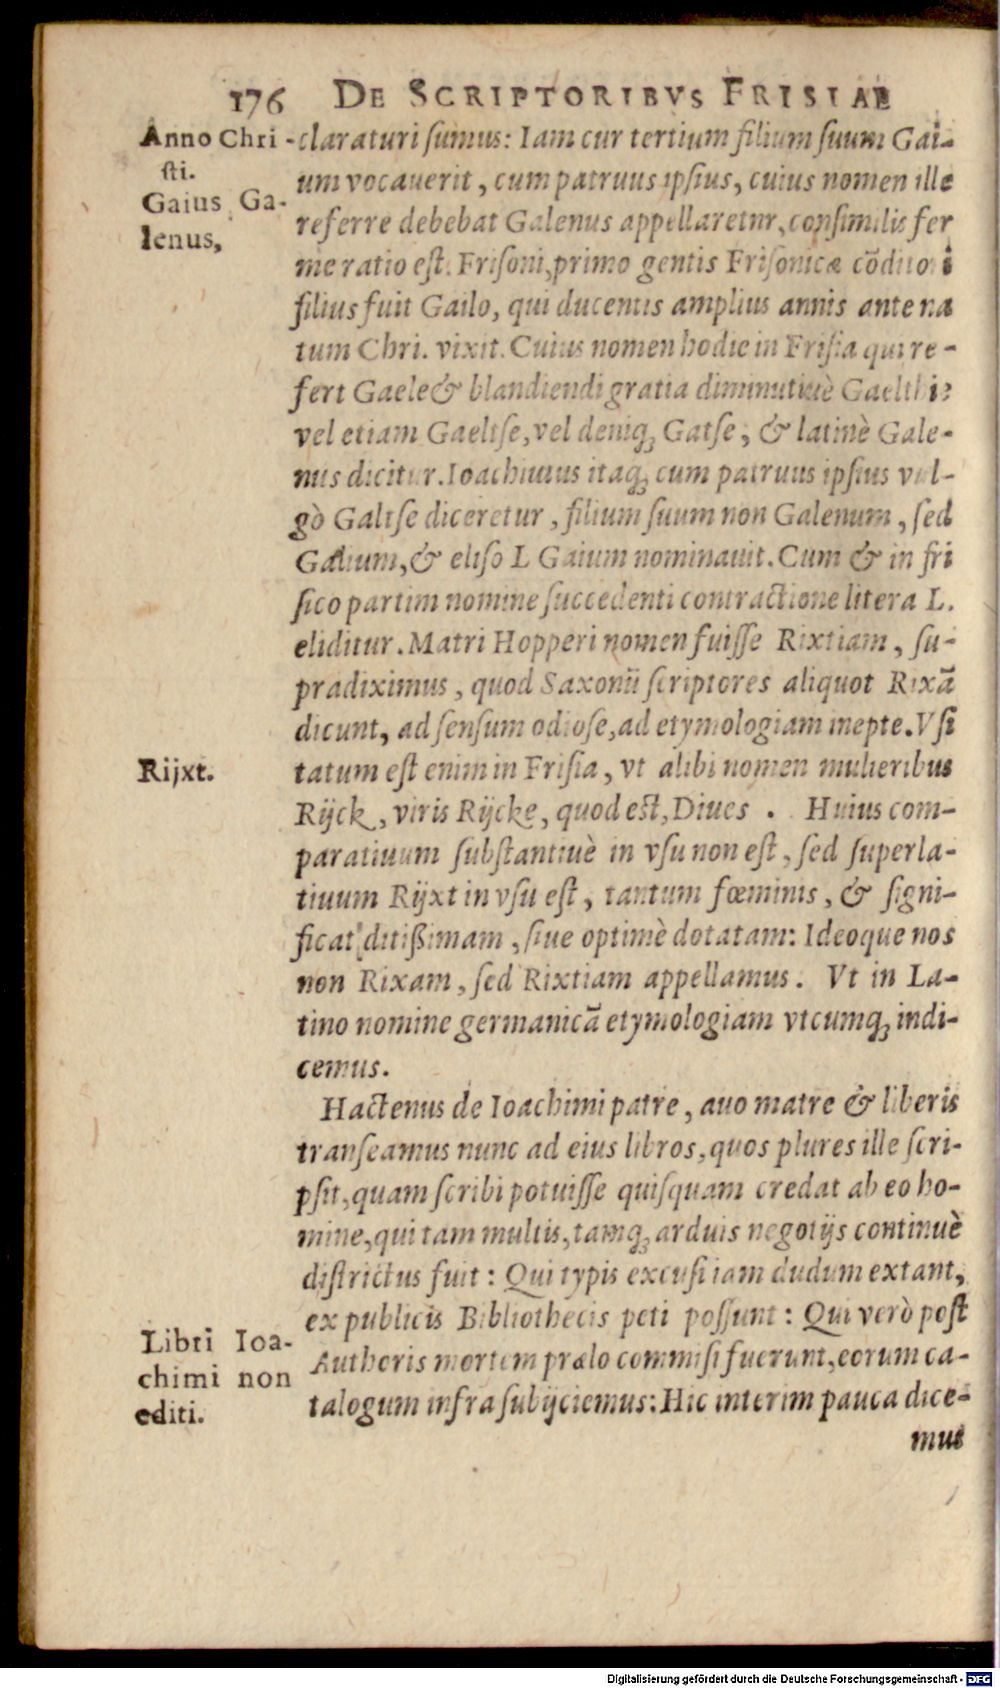 176 DE SCRIPTORIBVS FRISIAE
Anno Chri-
sti.
Gaius Ga-
lenus,
claraturi sumus: Iam cur tertium filium suum Gai-
um vocauerit, cum patruus ipsius, cuius nomen ille
referre debebat Galenus appellaretnr, consimilis fer
me ratio est. Frisoni, primo gentis Frisonicæ cõditori
filius fuit Gailo, qui ducentis amplius annis ante na
tum Chri. vixit. Cuius nomen hodie in Frisia qui re-
fert Gaele & blandiendi gratia diminutiuè Gaelthie
vel etiam Gaeltse, vel deniq; Gatse, & latinè Gale-
nus dicitur. Ioachimus itaq; cum patruus ipsius vul-
gò Galtse diceretur, filium suum non Galenum, sed
Galium, & eliso L Gaium nominauit. Cum & in fri
sico partim nomine succedenti contractione litera L.
eliditur. Matri Hopperi nomen fuisse Rixtiam, su-
pra diximus, quod Saxonii scriptores aliquot Rixã
dicunt, ad sensum odiose, ad etymologiam inepte. Vsi
Rijxt.
tatum est enim in Frisia, vt alibi nomen mulieribus
Rijck, viris Rijcke, quod est, Diues. Huius com-
paratiuum substantiuè in vsu non est, sed superla-
tiuum Rijxt in vsu est, tantum fœminis, & signi-
ficat ditißimam, siue optimè dotatam: Ideoque nos
non Rixam, sed Rixtiam appellamus. Vt in La-
tino nomine germanicã etymologiam vtcumq; indi-
cemus.
Hactenus de Ioachimi patre, auo matre & liberis
transeamus nunc ad eius libros, quos plures ille scri-
psit, quam scribi potuisse quisquam credat ab eo ho-
mine, qui tam multis, tamq; arduis negotijs continuè
districtus fuit: Qui typis excusi iam dudum extant,
ex publicis Bibliothecis peti possunt: Qui verò post
Libri Ioa-
chimi non
editi.
Authoris mortem prælo commisi fuerunt, eorum ca-
talogum infra subijciemus: Hic interim pauca dice-
mus
Digitalisierung gefördert durch die Deutsche Forschungsgemeinschaft - DFG